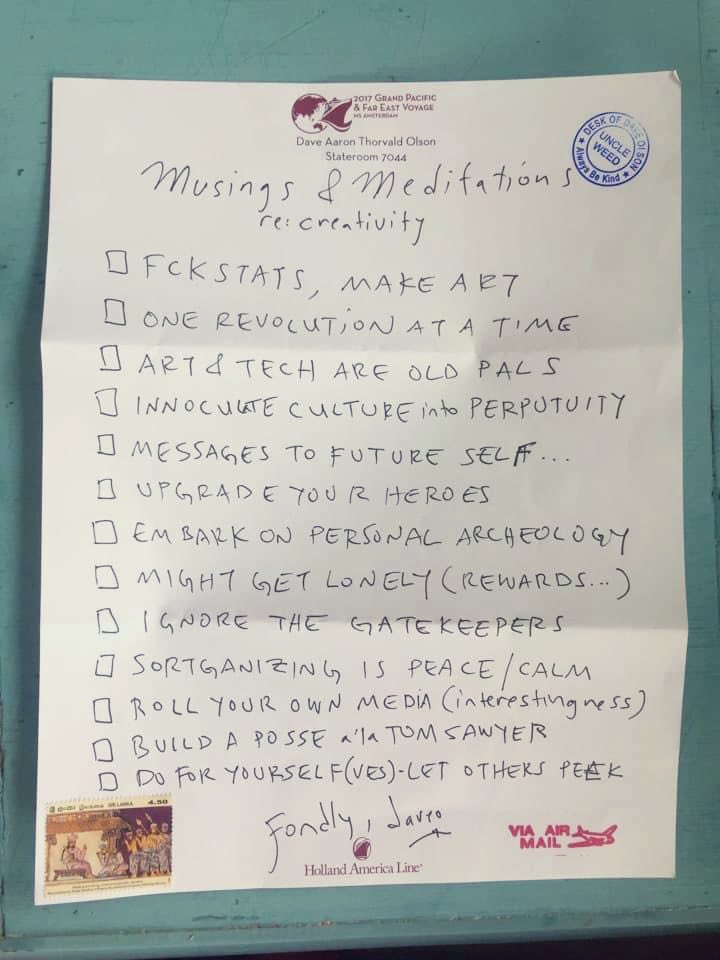 2017 GRAND PACIFIC
& FAR EAST VOYAGE
MS AMSTERDAM
Dave Aaron Thorvald Olson
Stateroom 7044
DESK OF DAVE OLSON
UNCLE
WEED
★ Always Be Kind ★
Musings & Meditations
re: creativity
FCK STATS, MAKE ART
ONE REVOLUTION AT A TIME
ART & TECH ARE OLD PALS
INNOCULATE CULTURE into PERPUTUITY
MESSAGES TO FUTURE SELF...
UPGRADE YOUR HEROES
EMBARK ON PERSONAL ARCHEOLOGY
MIGHT GET LONELY (REWARDS...)
IGNORE THE GATEKEEPERS
SORTGANIZING IS PEACE/CALM
ROLL YOUR OWN MEDIA (interestingness)
BUILD A POSSE a'la TOM SAWYER
DO FOR YOURSELF(VES)-LET OTHERS PEEK
Fondly, daveo
SRI LANKA 4.50
VIA AIR
MAIL
Holland America Line